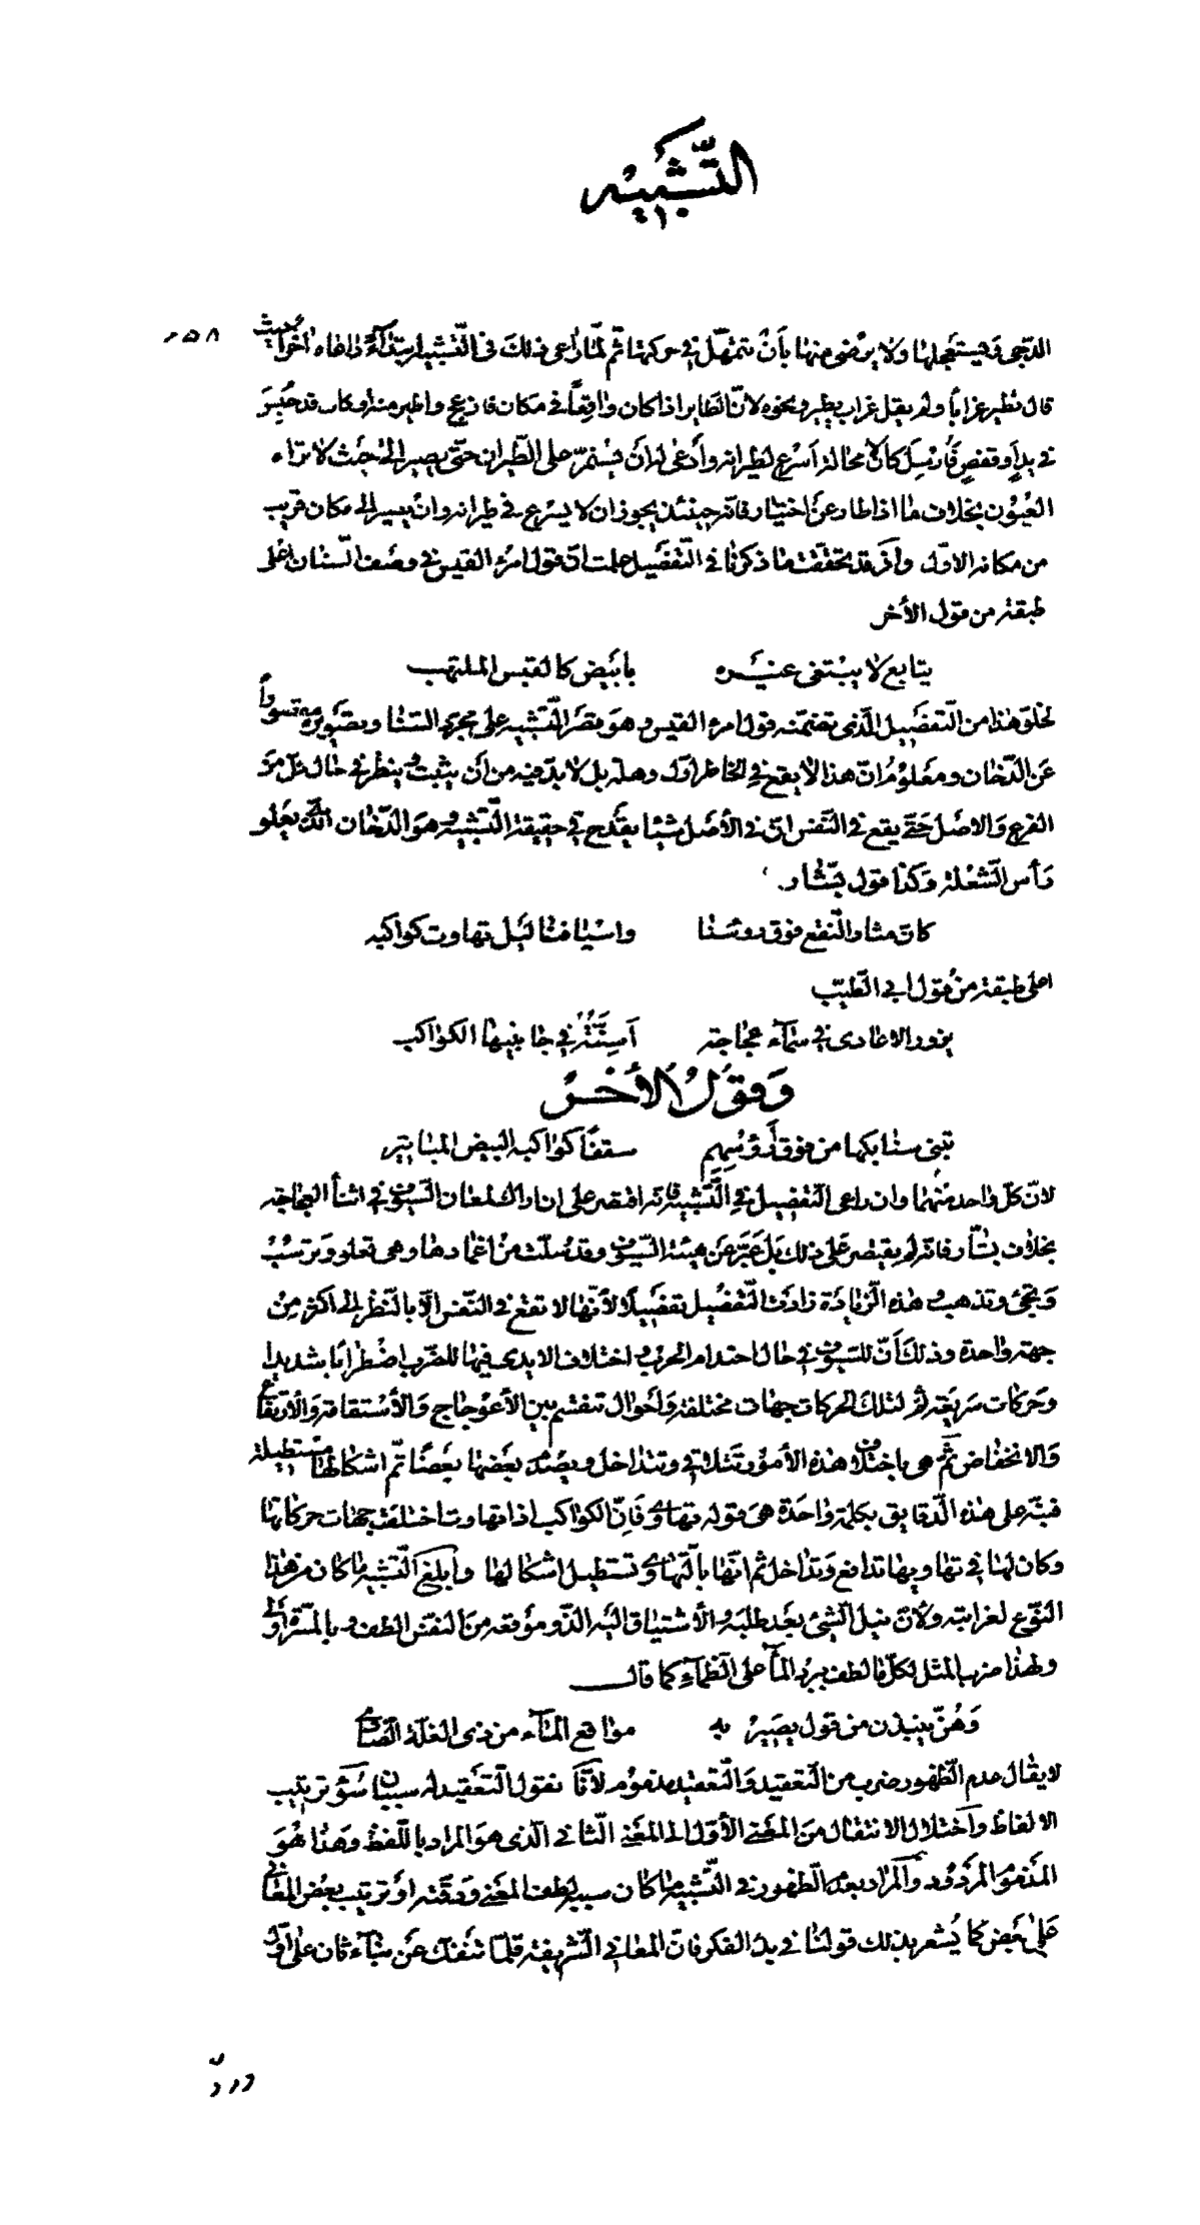 التشبيه
٢٥٨
الدجى ويستعجلها ولا يرضى منها بأن تتمهل في حركتها ثم لما راعى ذلك في التشبيه ابتداءً راعاه آخراً حيث
قال نطير غراباً ولم يقل غراب يطير ونحوه لانّ الطاير اذا كان واقعاً في مكان فازعج واطير منه او كان قد حُبِسَ
في يدٍ أو قفصٍ فأُرسِل كان لا محالة أسرع لطيرانه وأدعى له أن يستمرّ على الطيران حتى يصير الى حيث لا تراه
العُيُون بخلاف ما اذا طار عن اختيار فانه حينئذ يجوز ان لا يسرع في طيرانه وان يصير الى مكان قريب
من مكانه الاوّل واذ قد تحققت ما ذكرنا في التفصيل علمت انّ قول امرء القيس في وصف السنان اعلى
طبقة من قول الأخر
يتابع لا يبتغى غيره بأبيض كالقبس الملتهب
لخلوّ هذا من التفصيل الّذى تضمّنه قول امرء القيس وهو قصر التشبيه على مجرد السنا وتصويره مقسوراً
عن الدّخان ومعلوم انّ هذا لا يقع في الخاطر اول وهلة بل لا بدّ فيه من أن يثبت وينظر في حال كل من
الفرع والاصل حتى يقع في النفس انّ في الأصل شيئا يقدح في حقيقة التشبيه وهو الدّخان الذى يعلو
رأس الشعلة وكذا قول بشّار
كانّ مثار النقع فوق رءوسنا واسيافنا ليل تهاوت كواكبه
اعلى طبقة من قول ابى الطيّب
يزور الاعادى في سماء عجاجة أسنّته في جانبيها الكواكب
وقول الأخر
تبنى سنابكها من فوق أرؤسهم سقفًا كواكبه البيض المباتير
لانّ كلّ واحد منهما وان راعى التفضيل في التشبيه فانه اقتصر على ان اراك لمعان السيوف في اثناء العجاجة
بخلاف بشّار فانه لم يقتصر على ذلك بل عبّر عن هيئة السيوف وقد سُلّت من اغمادها وهى تعلو وترسُبُ
وتجئ وتذهب وهذه الزيادة زادت التفضيل تفضيلا لأنّها لا تقع في النفس الّا بالنّظر الى اكثر من
جهة واحدة وذلك أنّ للسّيوف في حال احتدام الحرب واختلاف الايدى فيها للضرب اضطرابًا شديدا
وحركات سريعة ثم لتلك الحركات جهات مختلفة واحوال تنقسم بين الأعوجاج والأستقامة والأرتفاع
والانخفاض ثمّ هى باختلاف هذه الأمور تتلاقى وتتداخل ويصدم بعضها بعضًا ثمّ اشكالها مستطيلة
فنبّه على هذه الدّقايق بكلمة واحدة هى قوله تهاوى فانّ الكواكب اذا تهاوت اختلفت جهات حركاتها
وكان لها في تهاويها تدافع وتداخل ثم انّها بالتّهاوى تستطيل اشكالها وابلغ التشبيه ما كان من هذا
النّوع لغرابته ولأنّ نيل الشّئ بعد طلبه والأشتياق اليه الذّ وموقعه من النفس الطف وبالمسرّة أولى
ولهذا ضرب المثل لكلّ ما لطف ببرد الماء على الظمآء كما قال
وهُنّ ينبذن من قول يصبن به مواقع الماء من ذى الغلّة الصّادى
لا يقال عدم الظّهور ضرب من التعقيد والتّعقيد مذموم لأنّا نقول التعقيد له سببان سوء ترتيب
الالفاظ واختلال الانتقال من المعنى الأوّل الى المعنى الثّانى الّذى هو المراد باللّفظ وهذا هو
المذموم المردود والمراد بعدم الظّهور في التّشبيه ما كان سببه لطف المعنى ودقّته او ترتيب بعض المعانى
على بعض كما يُشعر بذلك قولنا في بدء الفكر فانّ المعانى الشريفة قلّما تنفك عن بناء ثان على اوّل